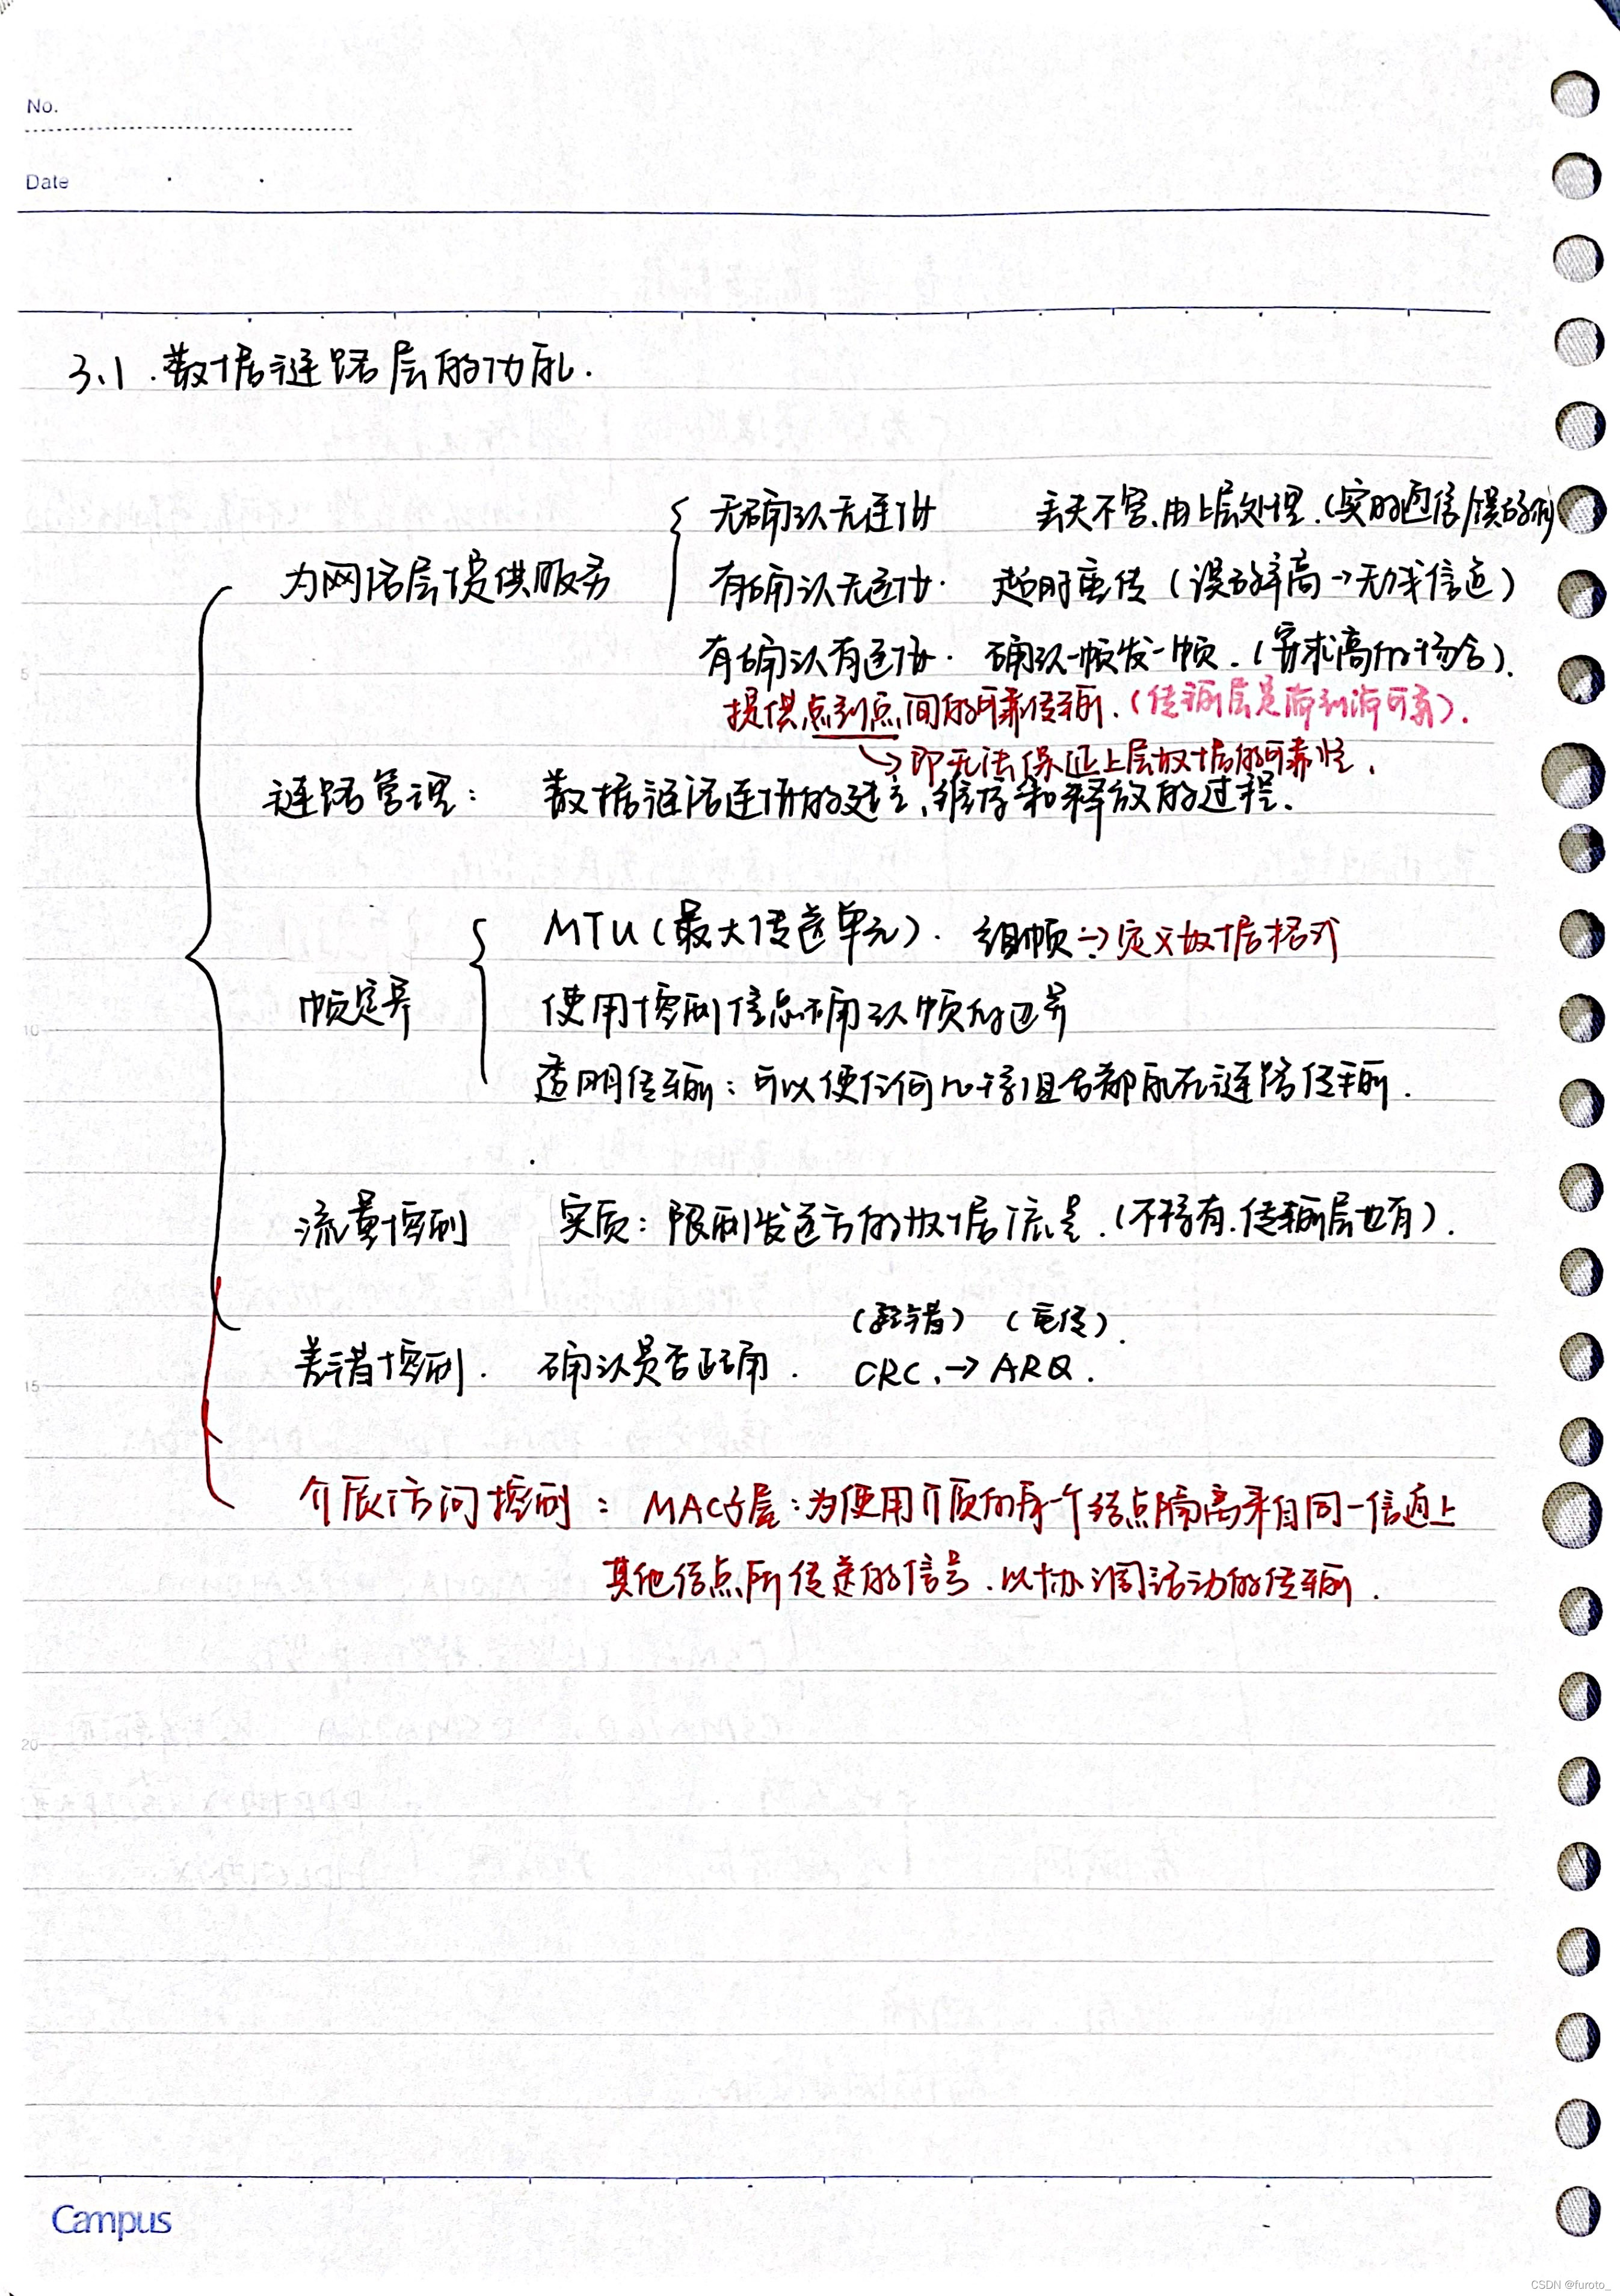 No.
Date
3.1. 数据链路层的功能.
为网络层提供服务
无确认无连接 丢失不管、由上层处理.(实时通信/误码低)
有确认无连接. 超时重传(误码率高→无线信道)
有确认有连接. 确认一帧发一帧.(要求高的场合).
提供点到点间的可靠传输.(传输层是端到端可靠).
→即无法保证上层数据的可靠性.
链路管理: 数据链路连接的建立、维持和释放的过程.
帧定界
MTU(最大传送单元). 组帧→定义数据格式
使用控制信息确认帧的边界
透明传输:可以使任何比特组合都能在链路传输.
流量控制 实质:限制发送方的数据流量.(不独有.传输层也有).
差错控制. 确认是否正确. CRC.→ARQ.
(纠错) (重传).
介质访问控制: MAC子层:为使用介质的每一个结点隔离来自同一信道上
其他结点所传送的信号.以协调活动的传输.
5
10
15
20
Campus
CSDN @furoto_